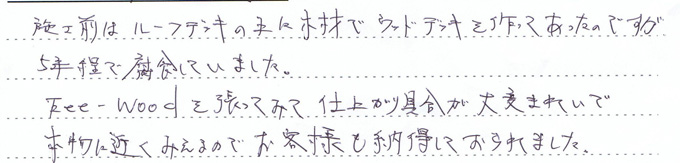 施工前はルーフデッキの上に木材でウッドデッキを作ってあったのですが
5年程で腐食していました。
Eee-Woodを張ってみて仕上がり具合が大変きれいで
本物に近くみえるのでお客様も納得しておられました。